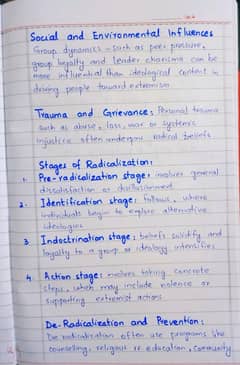 Social and Environmental Influences
Group dynamics - such as peer pressure,
group loyalty and leader charisma can be
more influential than ideological content in
driving people toward extremism
Trauma and Grievance: Personal trauma
such as abuse, loss, war or systemic
injustice often underpins radical beliefs
Stages of Radicalization:
1. Pre-radicalization stage: involves general
dissatisfaction or disillusionment
2. Identification stage: follows, where
individuals begin to explore alternative
ideologies
3. Indoctrination stage: beliefs solidify and
loyalty to a group or ideology intensifies
4. Action stage: involves taking concrete
steps, which may include violence or
supporting extremist actions
De-Radicalization and Prevention:
De radicalization often use programs like
counselling, religious re education, community